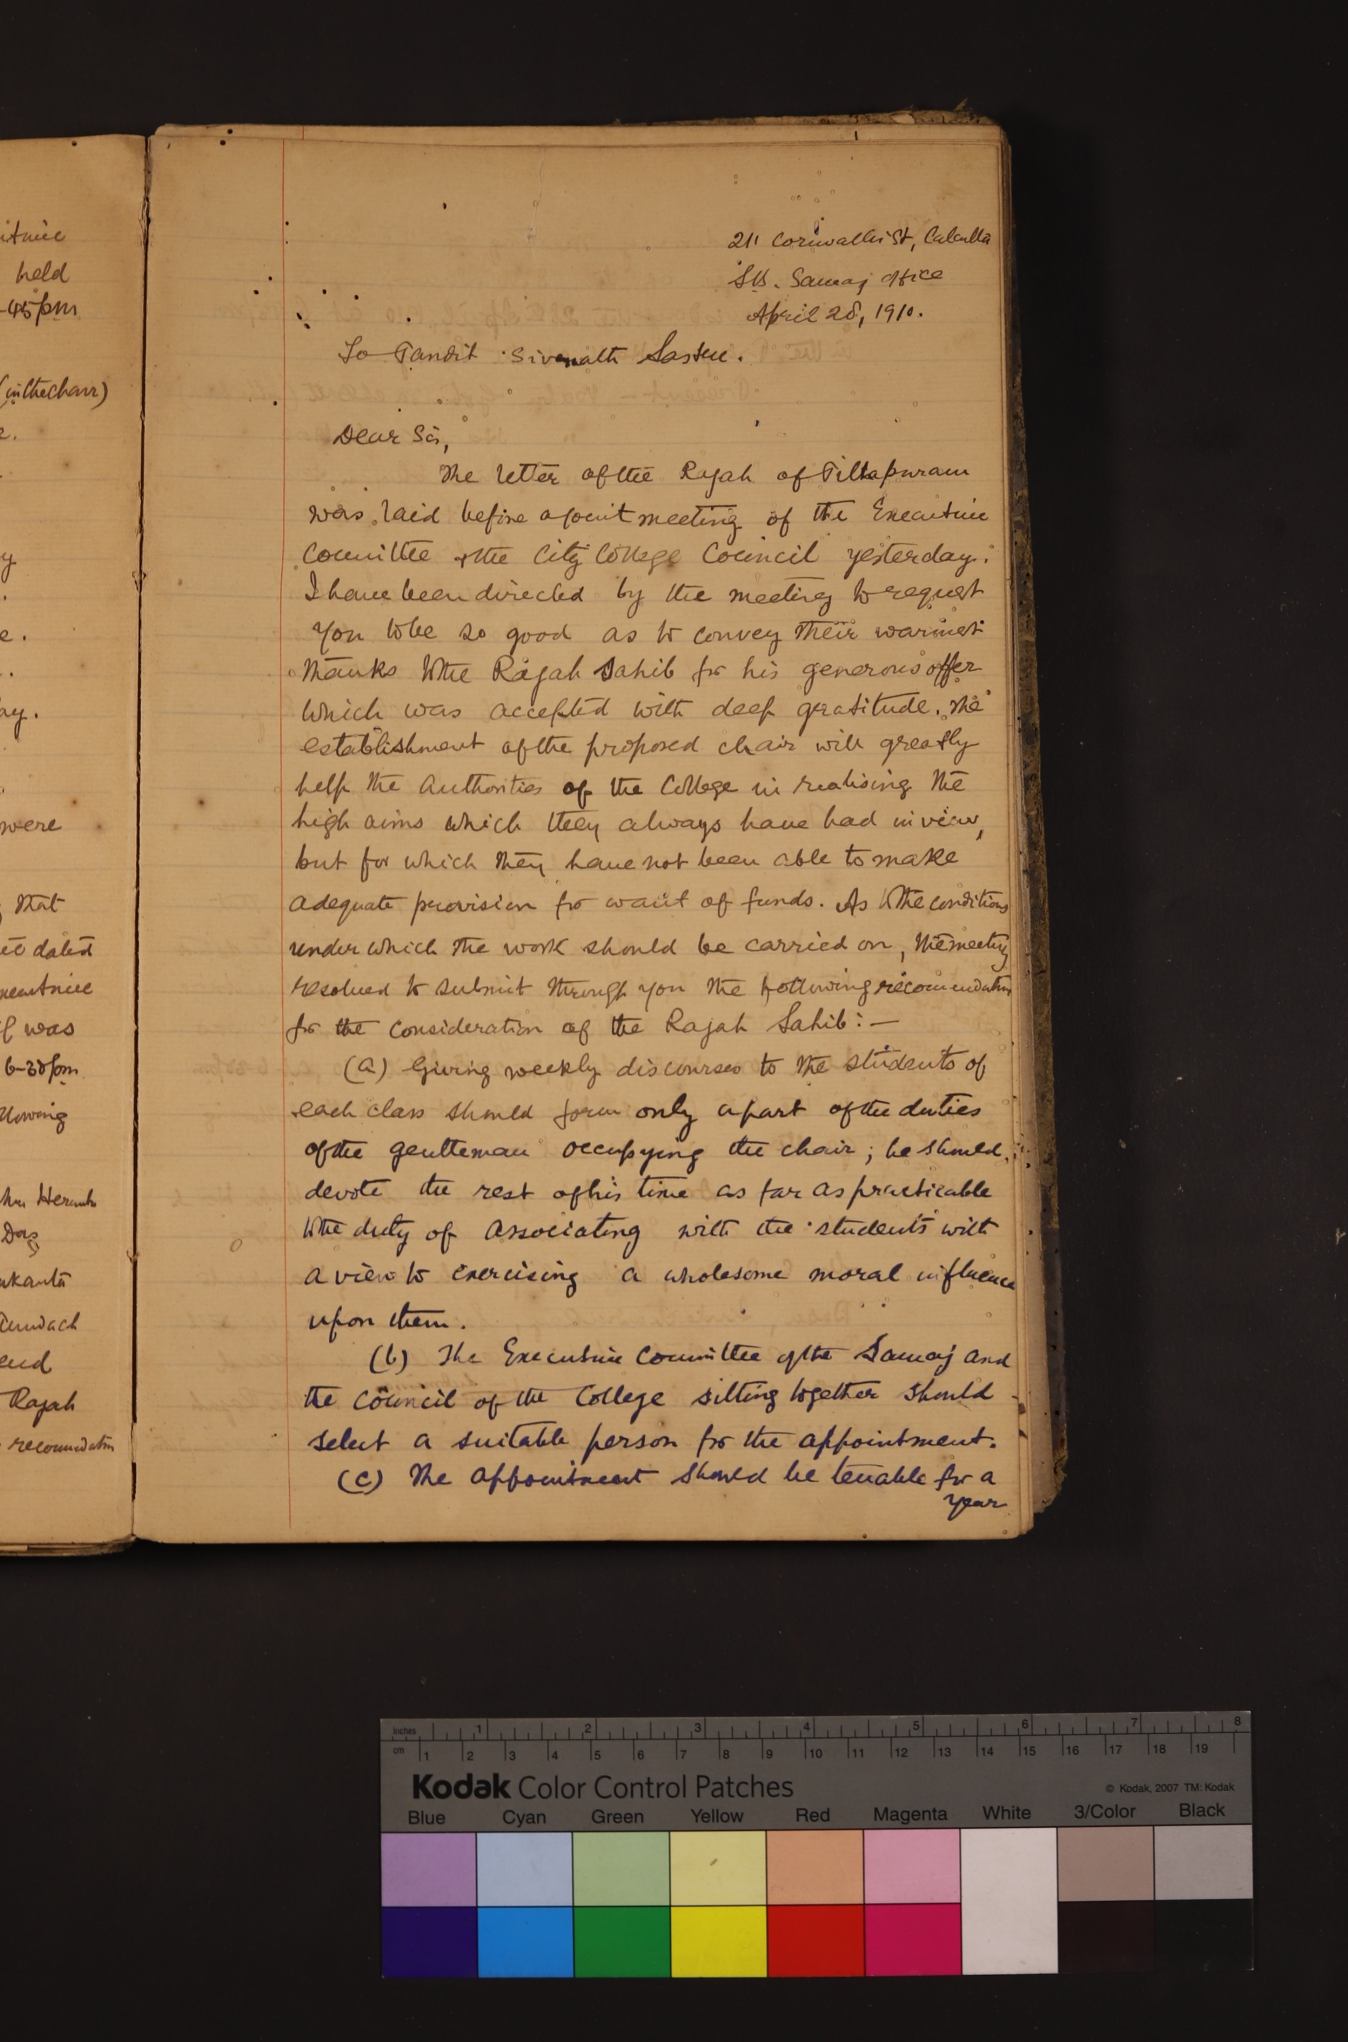 itive
held
-45pm
(in the chair)
were
that
dated
xecutive
was
6-30pm
llowing
Dos
ukanta
end
Rajah
recommendation
211 Cornwallis St, Calcutta
S.B. Samaj office
April 28, 1910.
To Pandit Sivanath Sastri.
Dear Sir,
The letter of the Rajah of Pittapuram
was laid before a joint meeting of the Executive
Committee & the City College Council yesterday.
I have been directed by the meeting to request
you to be so good as to convey their warmest
thanks to the Rajah Sahib for his generous offer
which was accepted with deep gratitude. The
establishment of the proposed chair will greatly
help the Authorities of the College in realising the
high aims which they always have had in view,
but for which they have not been able to make
adequate provision for want of funds. As to the conditions
under which the work should be carried on, the meeting
resolved to submit through you the following recommendations
for the consideration of the Rajah Sahib:—
(a) Giving weekly discourses to the students of
each class should form only a part of the duties
of the gentleman occupying the chair; he should
devote the rest of his time as far as practicable
to the duty of associating with the students with
a view to exercising a wholesome moral influence
upon them.
(b) The Executive Committee of the Samaj and
the Council of the College sitting together should
select a suitable person for the appointment.
(c) The appointment should be tenable for a
year
inches 1 2 3 4 5 6 7 8
cm 1 2 3 4 5 6 7 8 9 10 11 12 13 14 15 16 17 18 19
Kodak Color Control Patches © Kodak, 2007 TM: Kodak
Blue Cyan Green Yellow Red Magenta White 3/Color Black